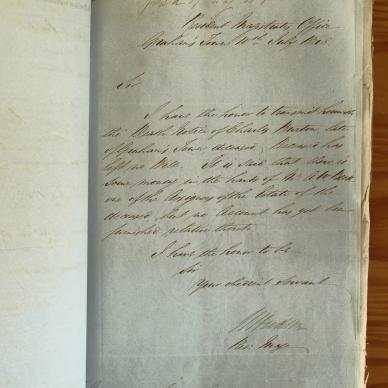 Resident Magistrates Office
Graham's Town 10th July
Sir
I have the honor to transmit herewith
the Death Notice of Charles Burton, late
of Graham's Town deceased, Deceased has
left no Will. It is said that there is
some money in the hands of Mr
one of the Assignees of the Estate of the
deceased, but no Account has yet been
furnished relative thereto
I have the honor to be
Sir
Your obedient Servant
Res: Mag